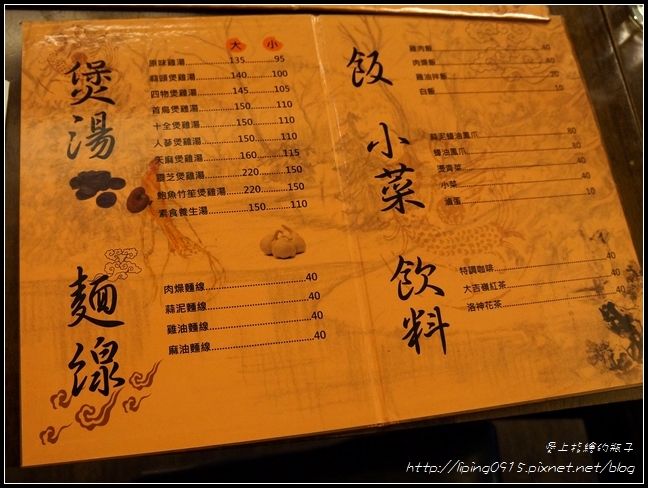 煲湯
大 小
原味雞湯................135............95
蒜頭煲雞湯............140..........100
四物煲雞湯............145..........105
首烏煲雞湯............150..........110
十全煲雞湯............150..........110
人蔘煲雞湯............150..........110
天麻煲雞湯............160..........115
靈芝煲雞湯............220..........150
鮑魚竹笙煲雞湯......220..........150
素食養生湯............150..........110
麵線
肉燥麵線........................40
蒜泥麵線........................40
雞油麵線........................40
麻油麵線........................40
飯
雞肉飯........................40
肉燥飯........................40
雞油拌飯........................20
白飯........................10
小菜
蒜泥蠔油鳳爪........................80
蠔油鳳爪........................80
燙青菜........................40
小菜........................40
滷蛋........................10
飲料
特調咖啡........................40
大吉嶺紅茶........................40
洛神花茶........................40
愛上拾繪的瓶子
http://liping0915.pixnet.net/blog